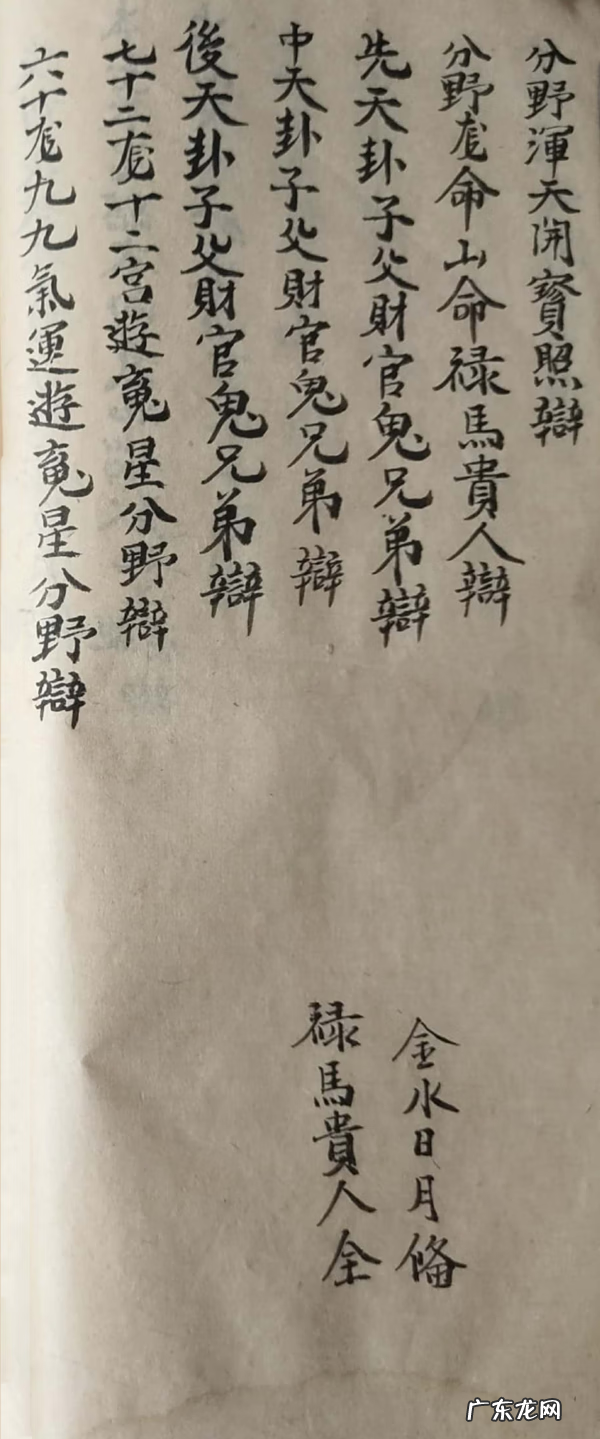 分野渾天開寶照辯
分野龙命山命禄馬貴人辯
先天卦子父財官鬼兄弟辯
中天卦子父財官鬼兄弟辯
後天卦子父財官鬼兄弟辯
七十二龙十二宮遊寃星分野辯
六十龙九九氣運遊寃星分野辯
金水日月俻
禄馬貴人全
广东龙网